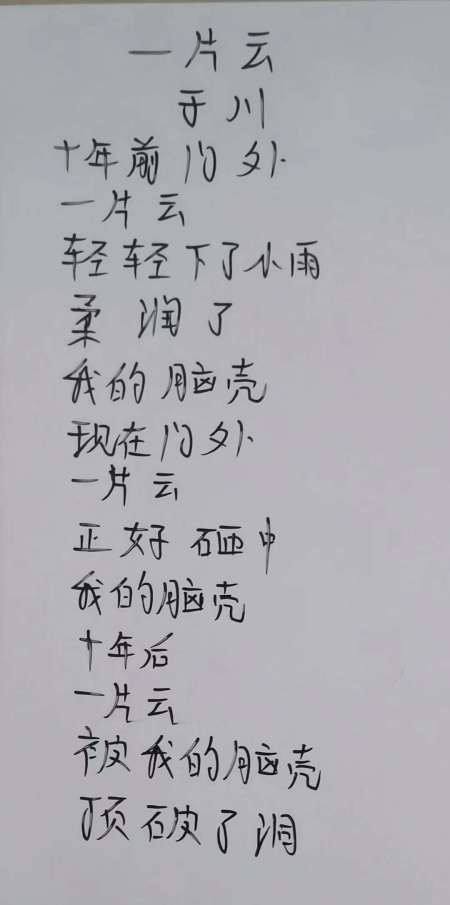 一片云
于川
十年前门外
一片云
轻轻下了小雨
柔润了
我的脑壳
现在门外
一片云
正好砸中
我的脑壳
十年后
一片云
被我的脑壳
顶破了洞